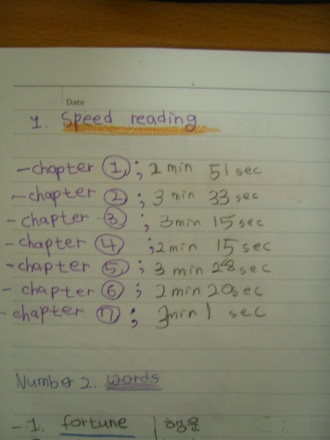 Date
1. Speed reading
-chapter ①; 2 min 51 sec
-chapter ②; 3 min 33 sec
-chapter ③; 3min 15 sec
-chapter ④ ;2min 15 sec
-chapter ⑤; 3 min 28 sec
-chapter ⑥; 2 min 20sec
-chapter ⑦; min 1 sec
Number 2. words
-1. fortune | 행운